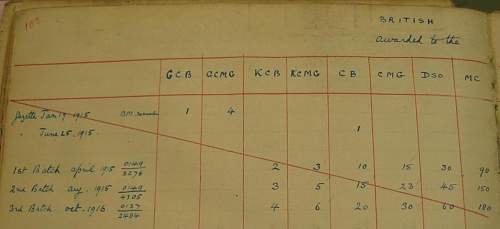 103
BRITISH
awarded to the
GCB GCMG KCB KCMG CB CMG DSO MC
Gazette Jan 19 1915 1 4
" June 25. 1915. 1
1st Batch april 1915 0149/3276 2 3 10 15 30 90
2nd Batch aug. 1915 0149/4305 3 5 15 23 45 150
3rd Batch oct. 1916 0137/2484 4 6 20 30 60 180